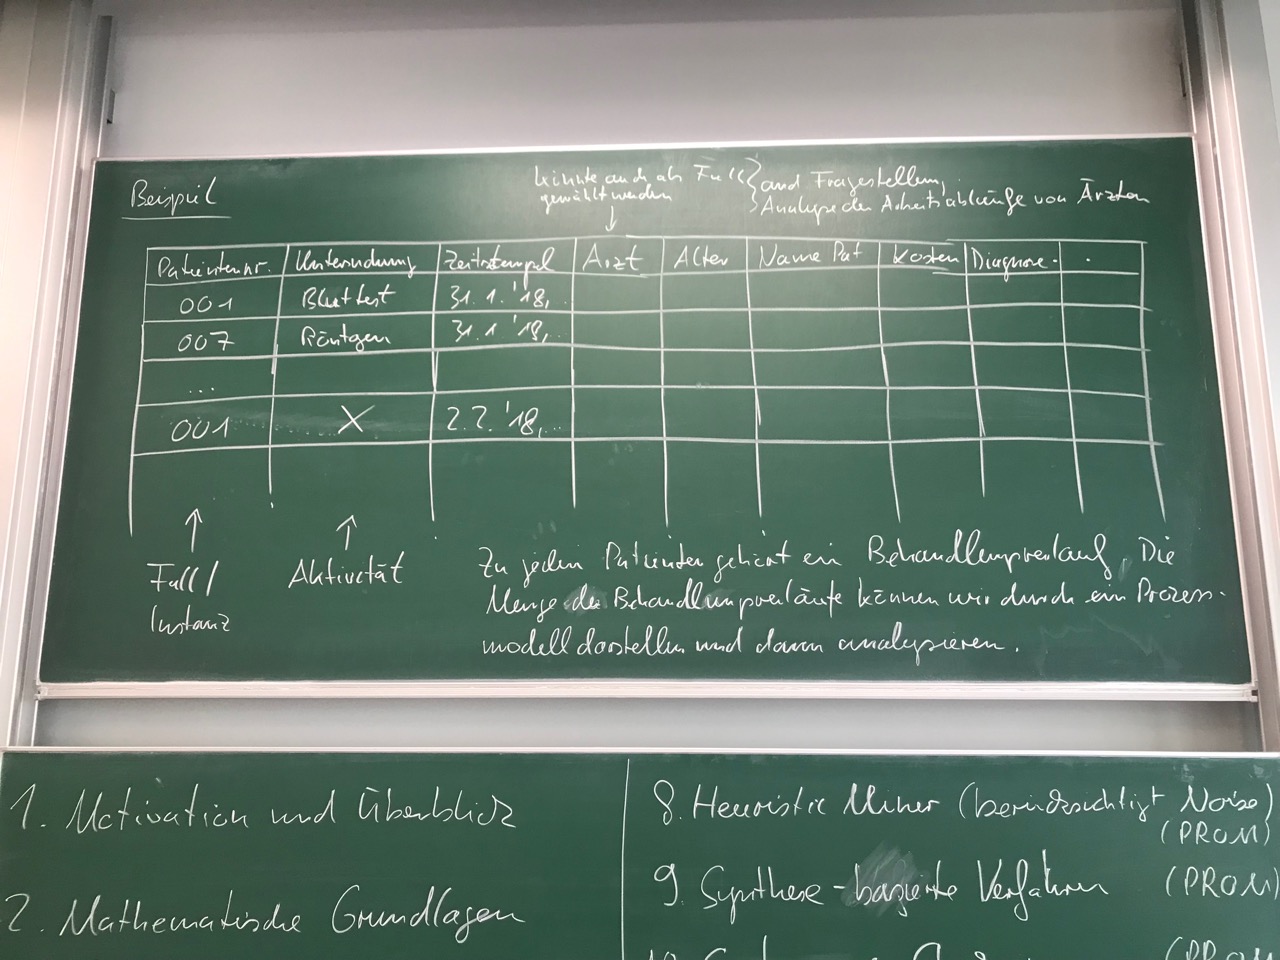 Beispiel
könnte auch als Fall
gewählt werden
and Fragestellung
Analyse der Arbeitsabläufe von Ärzten
Patientennr. Untersuchung Zeitstempel Arzt Alter Name Pat Kosten Diagnose .
001 Bluttest 31.1.'18,..
007 Röntgen 31.1.'18,..
...
001 X 2.2.'18,...
Fall/
Instanz
Aktivität
Zu jedem Patienten gehört ein Behandlungsverlauf. Die
Menge der Behandlungsverläufe können wir durch ein Prozess-
modell darstellen und daran analysieren.
1. Motivation und Überblick
2. Mathematische Grundlagen
8. Heuristic Miner (berücksichtigt Noise)
(PROM)
9. Synthese-basierte Verfahren (PROM)
(PROM